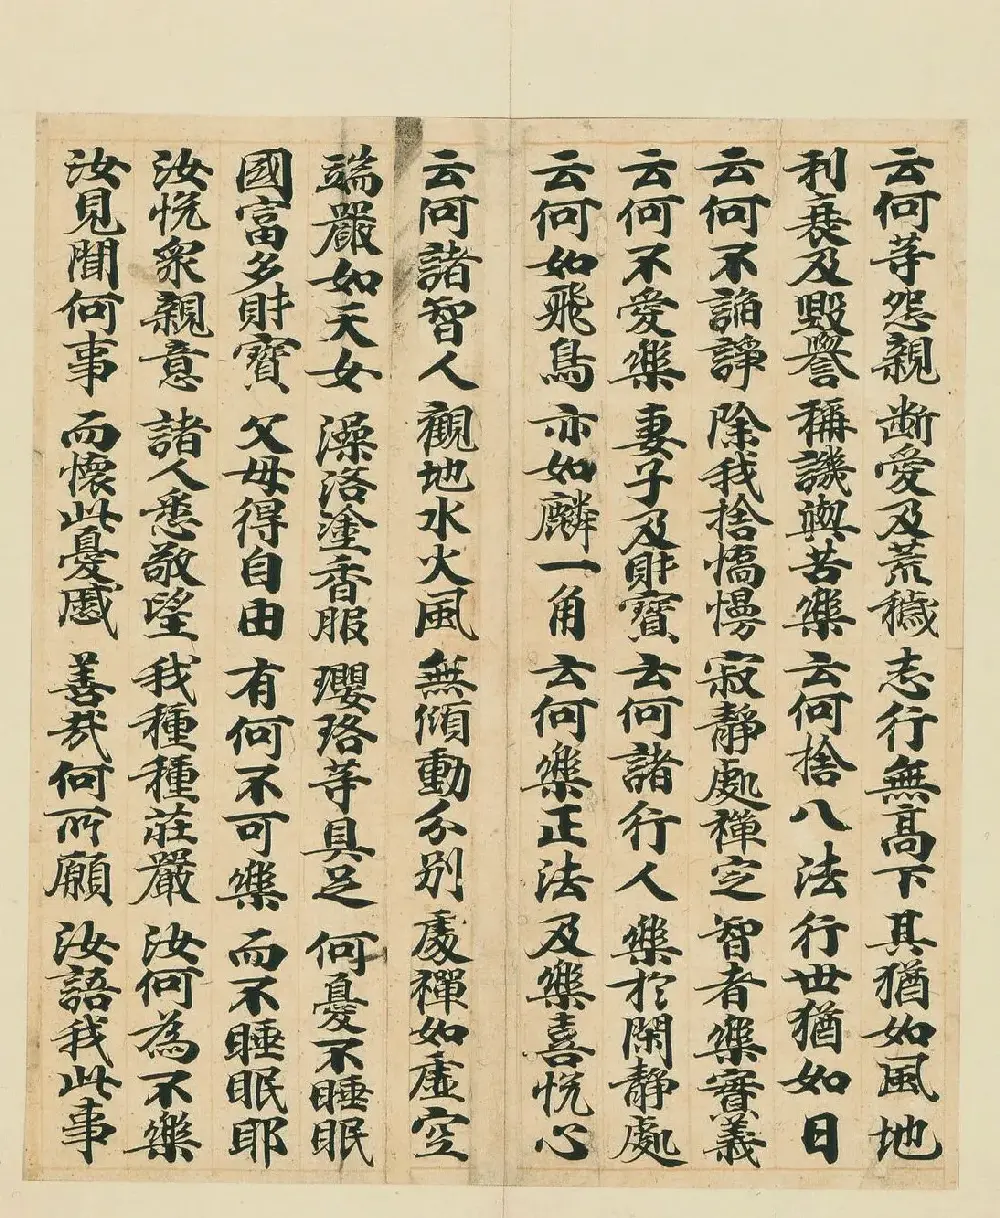 云何等怨親 断愛及荒穢 志行無高下 其猶如風地
利衰及毀譽 稱譏與苦樂 云何捨八法 行世猶如日
云何不諂諍 除我捨憍慢 寂靜處禪定 智者樂審義
云何不愛樂 妻子及財寶 云何諸行人 樂於閑靜處
云何如飛鳥 亦如麟一角 云何樂正法 及樂喜悅心
云何諸智人 觀地水火風 無傾動分別 處禪如虛空
端嚴如天女 澡洛塗香服 瓔珞等具足 何憂不睡眠
國富多財寶 父母得自由 有何不可樂 而不睡眠耶
汝悅衆親意 諸人悉敬望 我種種莊嚴 汝何為不樂
汝見聞何事 而懷此憂慼 善哉何所願 汝語我此事